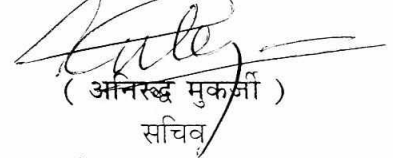 ( अनिरुद्ध मुकर्जी )
सचिव